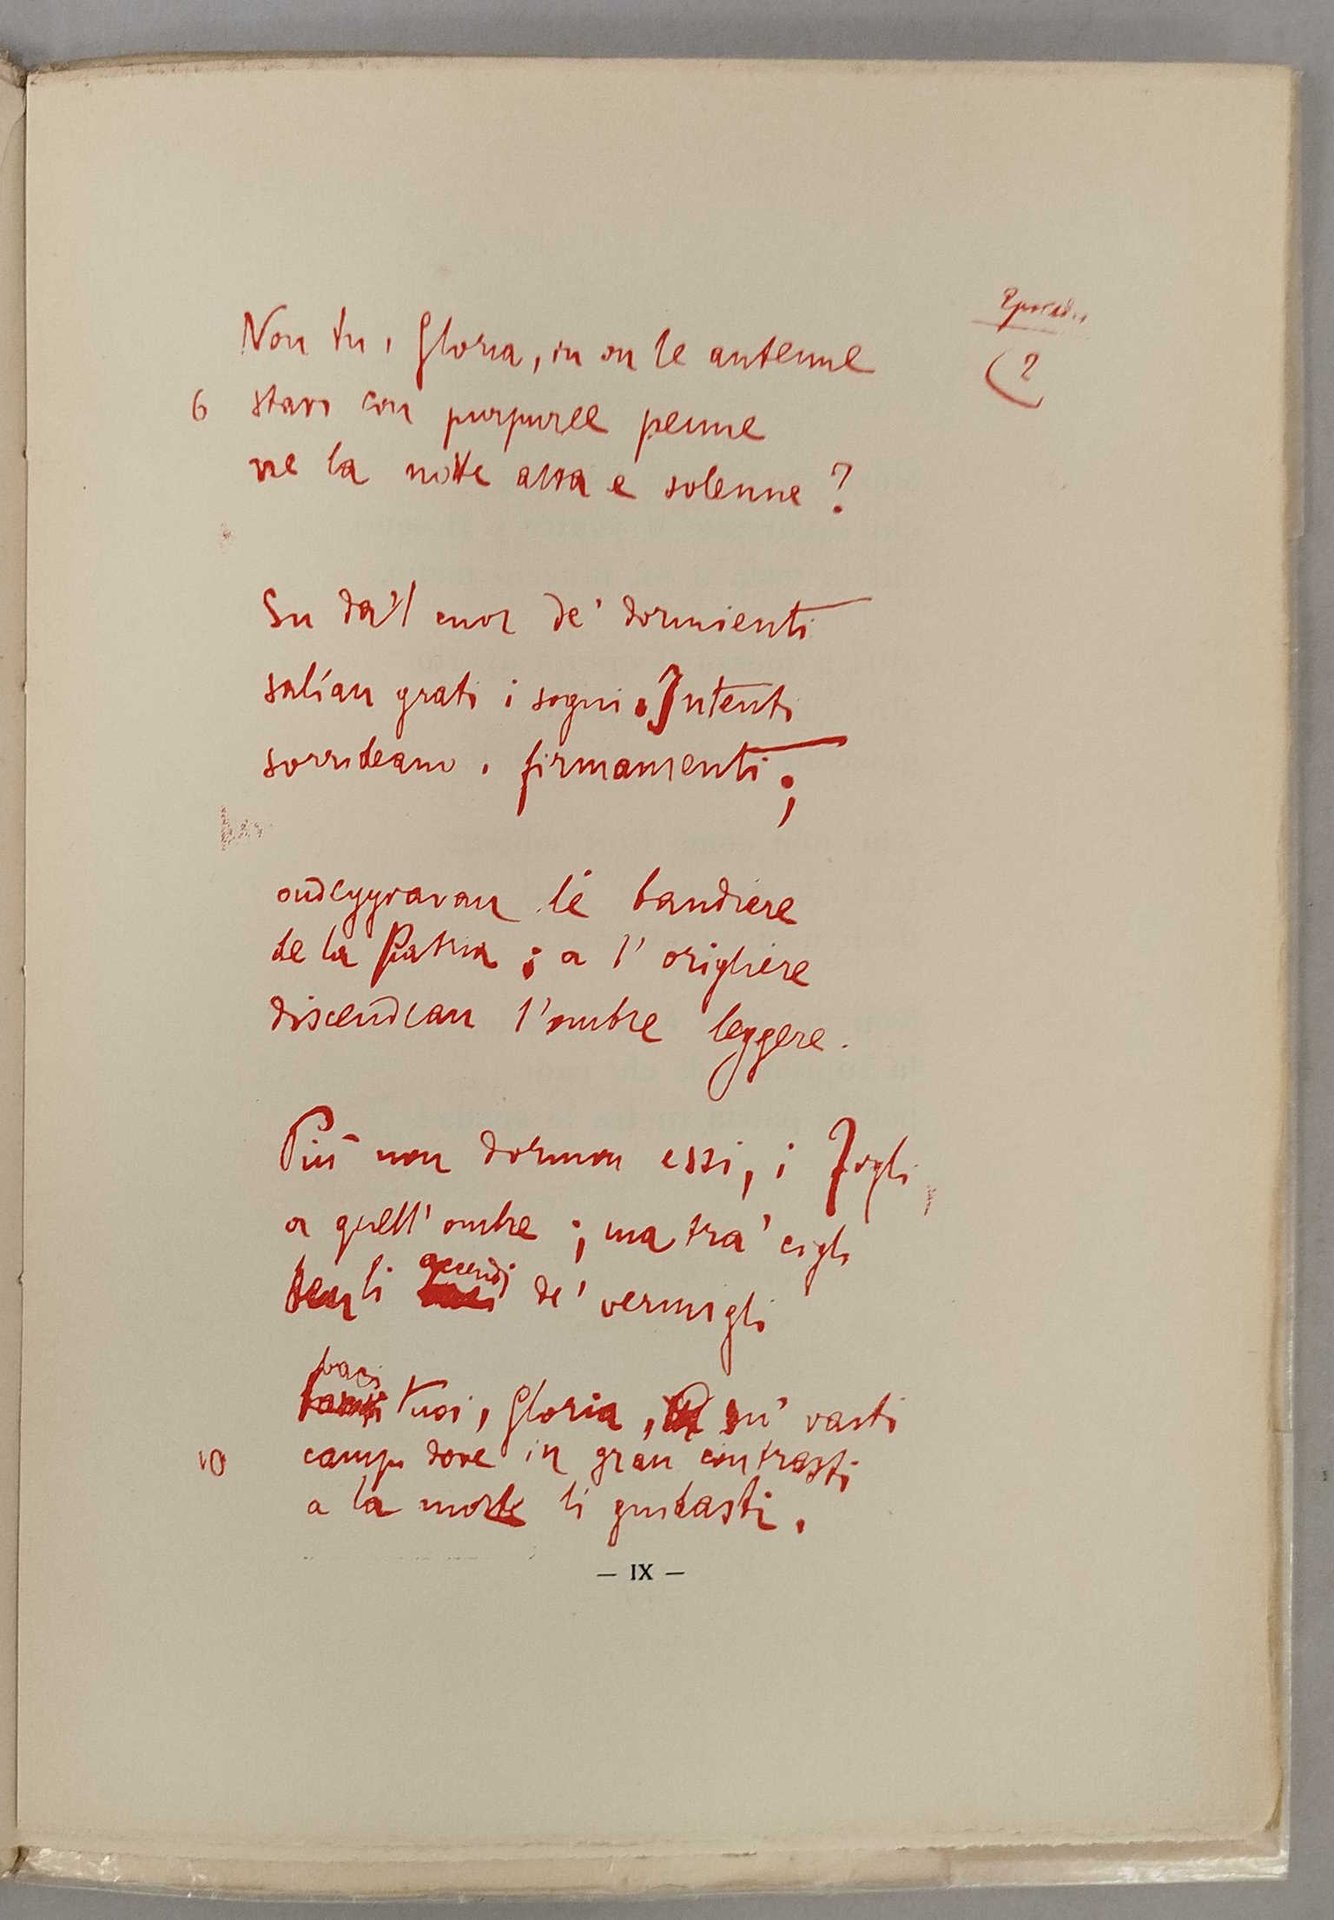 Epicedi
(2
Non tu, Gloria, in su le antenne
6 stavi con purpuree penne
ne la notte alta e solenne?
Su da'l cuor de' dormienti
salían grati i sogni. Intenti
sorrideano i firmamenti;
ondeggiavan le bandiere
de la Patria; a l'origliere
discendean l'ombre leggere.
Più non dormon essi, i Figli
a quell'ombre; ma tra' cigli
tengli accendi de' vermigli
baci tuoi, Gloria, su' vasti
10 campi dove in gran contrasti
a la morte li guidasti.
— IX —